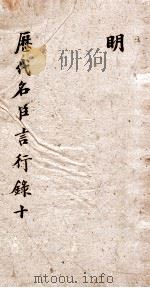 明
歷代名臣言行錄十
www.mtoou.info